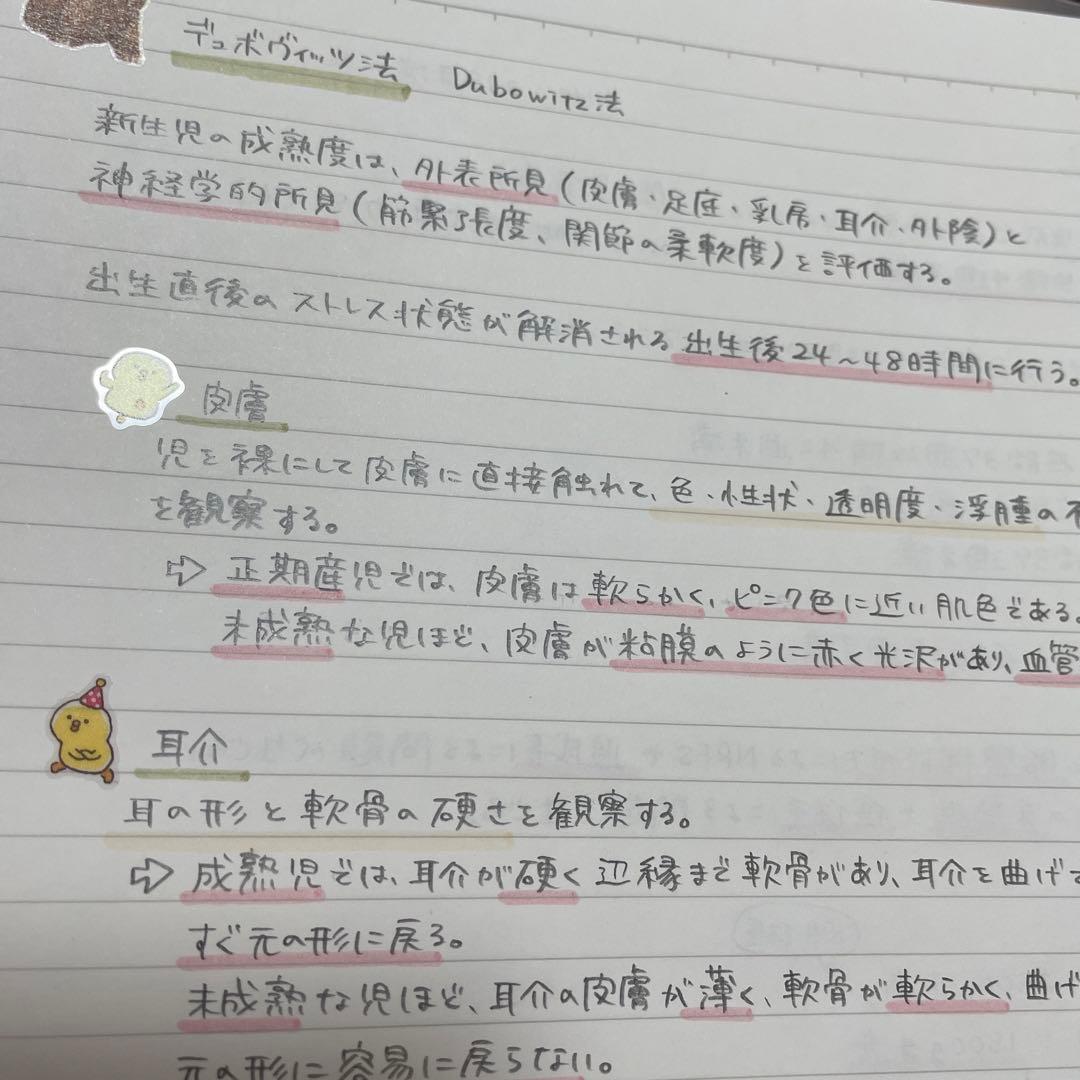 デュボヴィッツ法 Dubowitz法
新生児の成熟度は、外表所見(皮膚・足底・乳房・耳介・外陰)と
神経学的所見(筋緊張度、関節の柔軟度)を評価する。
出生直後のストレス状態が解消される出生後24～48時間に行う。
皮膚
児を裸にして皮膚に直接触れて、色・性状・透明度・浮腫の
を観察する。
⇨ 正期産児では、皮膚は軟らかく、ピンク色に近い肌色である。
未成熟な児ほど、皮膚が粘膜のように赤く光沢があり、血管
耳介
耳の形と軟骨の硬さを観察する。
⇨ 成熟児では、耳介が硬く辺縁まで軟骨があり、耳介を曲げて
すぐ元の形に戻る。
未成熟な児ほど、耳介の皮膚が薄く、軟骨が軟らかく、曲げ
元の形に容易に戻らない。